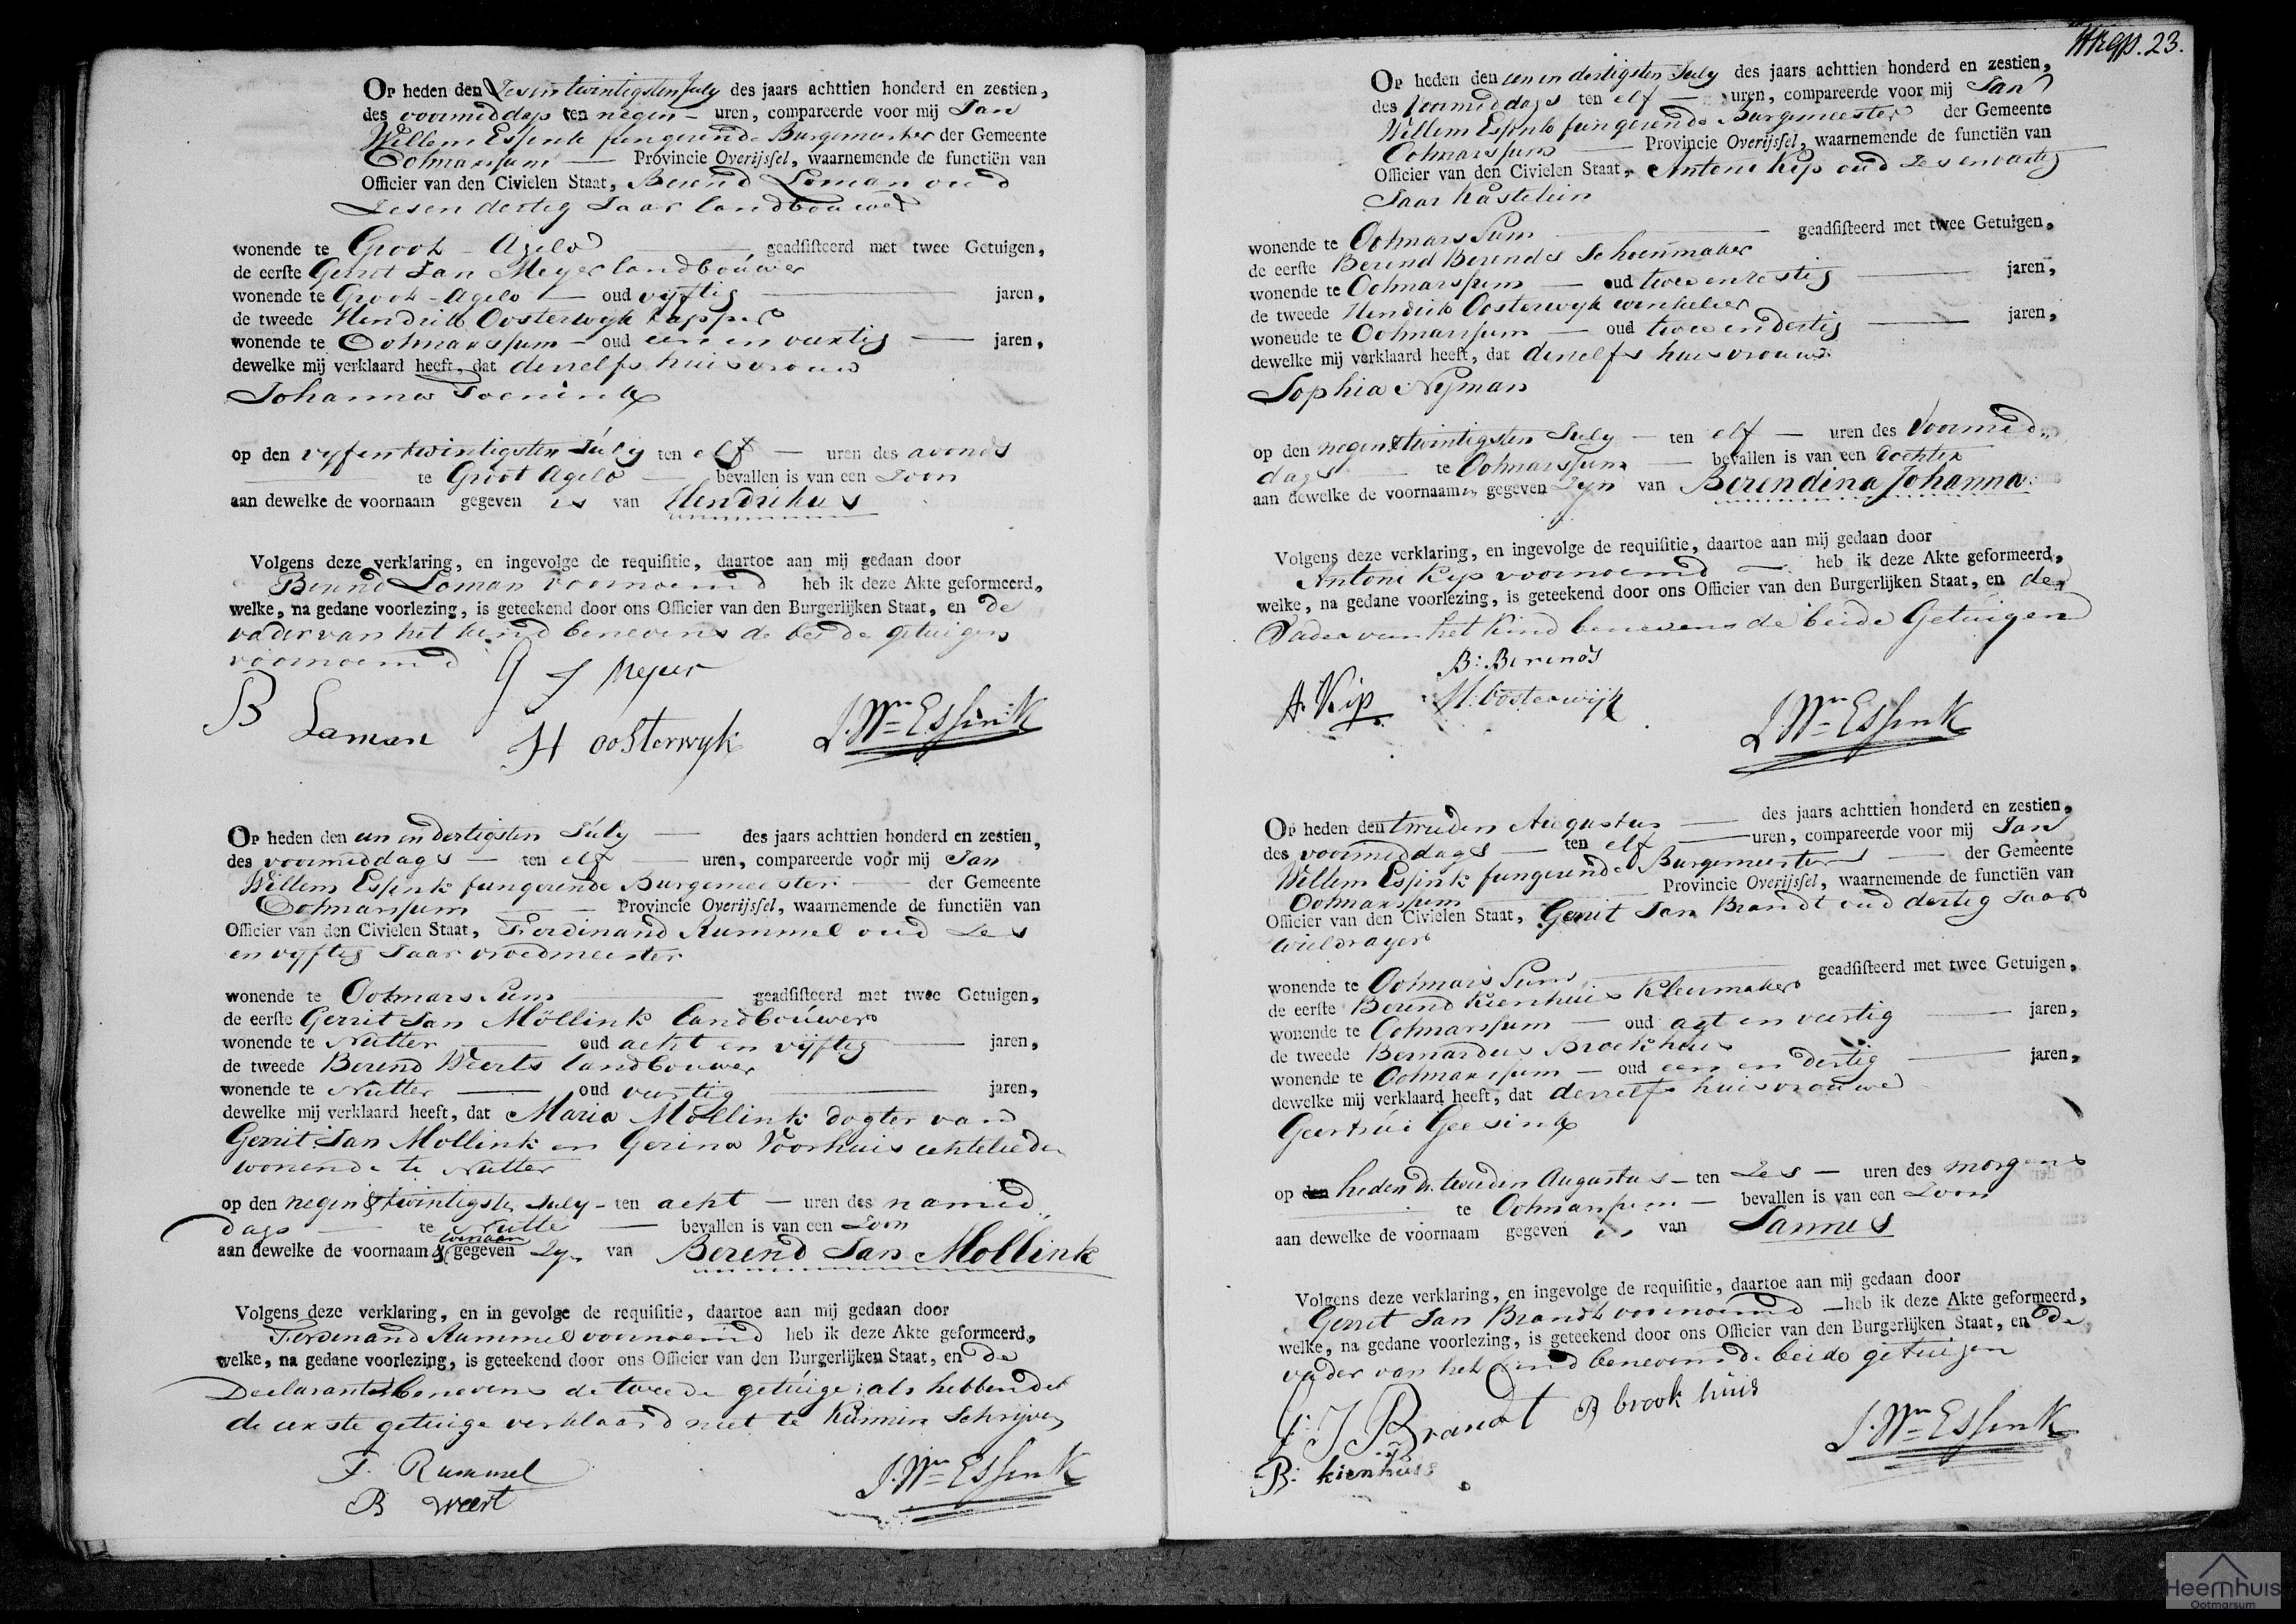 Op heden den Zesen twintigsten July des jaars achttien honderd en zestien,
des voormiddags ten negen – uren, compareerde voor mij Jan
Willem Essink fungerende Burgemeester der Gemeente
Ootmarssum — Provincie Overijssel, waarnemende de functiën van
Officier van den Civielen Staat, Berend Loman oud
Zesen dertig Jaar landbouwer
wonende te Groot – Agelo — geadsisteerd met twee Getuigen,
de eerste Gerrit Jan Meyer landbouwer
wonende te Groot – Agelo — oud vyftig — jaren,
de tweede Hendrik Oosterwyk tapper
wonende te Ootmarssum – oud een en veertig — jaren,
dewelke mij verklaard heeft, dat deszelfs huisvrouw
Johanna Toenink
op den vyfentwintigsten July ten elf — uren des avonds
te Groot Agelo — bevallen is van een Zoon
aan dewelke de voornaam gegeven is van Hendrikus
Volgens deze verklaring, en ingevolge de requisitie, daartoe aan mij gedaan door
Berend Loman voornoemd heb ik deze Akte geformeerd,
welke, na gedane voorlezing, is geteekend door ons Officier van den Burgerlijken Staat, en de
vader van het kind benevens de beide getuigen
voornoemd
G J Meyer
B Laman
H oosterwyk
J. Wm Essink
Op heden den een en dertigsten July — des jaars achttien honderd en zestien,
des voormiddags — ten elf — uren, compareerde voor mij Jan
Willem Essink fungerende Burgemeester — der Gemeente
Ootmarssum — Provincie Overijssel, waarnemende de functiën van
Officier van den Civielen Staat, Ferdinand Rummel oud Zes
en vyftig Jaar vroedmeester
wonende te Ootmarssum — geadsisteerd met twee Getuigen,
de eerste Gerrit Jan Möllink landbouwer
wonende te Nutter — oud acht en vyftig — jaren,
de tweede Berend Weerts landbouwer
wonende te Nutter — oud veertig — jaren,
dewelke mij verklaard heeft, dat Maria Mollink dogter van
Gerrit Jan Mollink en Gerina Voorhuis echtelieden
wonende te Nutter
op den negen & twintigsten July – ten acht – uren des namid
dags — te Nutter — bevallen is van een Zoon
aan dewelke de voornaam & toenaam gegeven Zyn van Berend Jan Mollink
Volgens deze verklaring, en in gevolge de requisitie, daartoe aan mij gedaan door
Ferdinand Rummel voornoemd heb ik deze Akte geformeerd,
welke, na gedane voorlezing, is geteekend door ons Officier van den Burgerlijken Staat, en de
Declarant benevens de tweede getuige; als hebbende
de eerste getuige verklaard niet te kunnen Schrijven
F. Rummel
B weert
J. Wm Essink
23.
Op heden den een en dertigsten July des jaars achttien honderd en zestien,
des Voormiddags ten elf — uren, compareerde voor mij Jan
Willem Essink fungerende Burgemeester der Gemeente
Ootmarssum — Provincie Overijssel, waarnemende de functiën van
Officier van den Civielen Staat, Antoni Kip oud Zes en vaertig
Jaar Kastelein
wonende te Ootmarssum — geadsisteerd met twee Getuigen,
de eerste Berend Berends Schoenmaker
wonende te Ootmarssum — oud twee en zestig — jaren,
de tweede Hendrik Oosterwyk winkelier
wonende te Ootmarssum — oud twee en dertig — jaren,
dewelke mij verklaard heeft, dat deszelfs huisvrouw
Sophia Nyman
op den negen & twintigsten July — ten elf — uren des Voormid
dags — te Ootmarssum — bevallen is van een dochter
aan dewelke de voornaamen gegeven Zyn van Berendina Johanna
Volgens deze verklaring, en ingevolge de requisitie, daartoe aan mij gedaan door
Antoni Kip voornoemd — heb ik deze Akte geformeerd,
welke, na gedane voorlezing, is geteekend door ons Officier van den Burgerlijken Staat, en de
Vader van het Kind benevens de beide Getuigen
B: Berends
A. Kip
H: oosterwijk
J. Wm Essink
Op heden den tweeden Augustus — des jaars achttien honderd en zestien,
des voormiddags — ten elf — uren, compareerde voor mij Jan
Willem Essink fungerende Burgemeester — der Gemeente
Ootmarssum — Provincie Overijssel, waarnemende de functiën van
Officier van den Civielen Staat, Gerrit Jan Brandt oud dertig Jaar
wieldrayer
wonende te Ootmarssum — geadsisteerd met twee Getuigen,
de eerste Berend Kienhuis Kleermaker
wonende te Ootmarssum — oud agt en veertig — jaren,
de tweede Bernardus Broekhuis
wonende te Ootmarssum – oud een en dertig — jaren,
dewelke mij verklaard heeft, dat deszelfs huisvrouwe
Geertrúi Geesink
op heden de tweeden Augustus – ten Zes – uren des morgens
te Ootmarssum — bevallen is van een Zoon
aan dewelke de voornaam gegeven is van Jannes
Volgens deze verklaring, en ingevolge de requisitie, daartoe aan mij gedaan door
Gerrit Jan Brandt voornoemd — heb ik deze Akte geformeerd,
welke, na gedane voorlezing, is geteekend door ons Officier van den Burgerlijken Staat, en de
vader van het kind benevens de beide getuigen
G: J Brandt
B brook huis
B: kienhuis
J. Wm Essink
Heemhuis
Ootmarsum